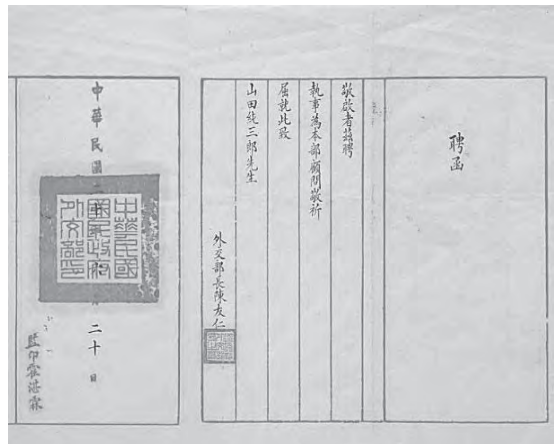 聘函
敬啟者茲聘
執事為本部顧問敬祈
屈就此致
山田純三郎先生
外交部長陳友仁
中華民國二十
二十日
中華民國
國民政府
外交部印
監印霍湛霖